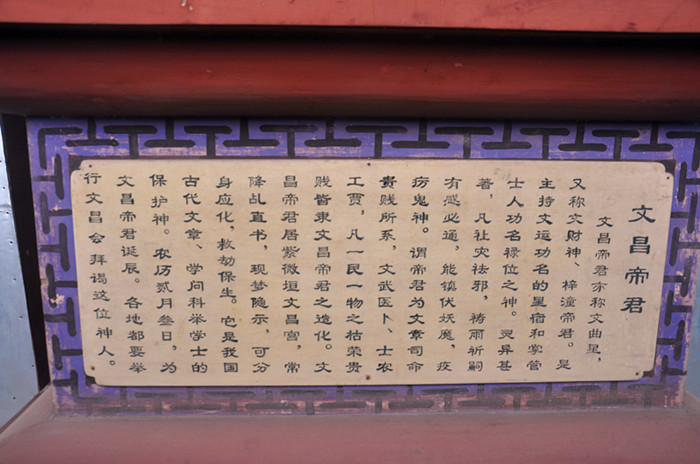 文昌帝君
文昌帝君亦称文曲星，
又称文财神、梓潼帝君。是
主持文运功名的星宿和掌管
士人功名禄位之神。灵异甚
著，凡社灾祛邪，祷雨祈嗣
有感必通，能镇伏妖魔，疫
疠鬼神。谓帝君为文章司命
贵贱所系，文武医卜、士农
工贾，凡一民一物之枯荣贵
贱皆隶文昌帝君之造化。文
昌帝君居紫微垣文昌宫，常
降乩直书，现梦隐示，可分
身应化，救劫保生。它是我国
古代文章、学问科举学士的
保护神。农历贰月叁日，为
文昌帝君诞辰。各地都要举
行文昌会拜谒这位神人。